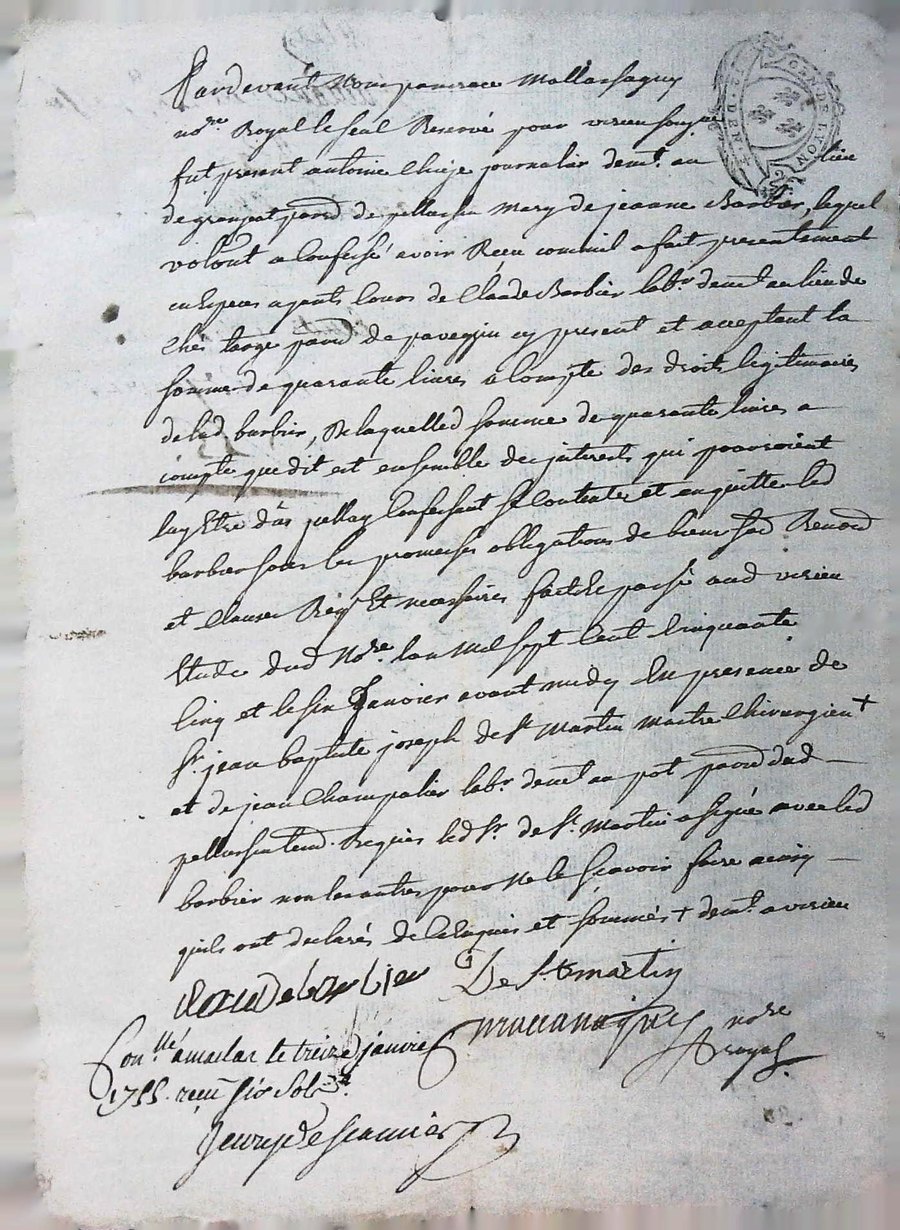 Pardevant Nous pancrace Mallassagny
no.re Royal le seul Reservé pour virieu soussigné
GEN. DE LYON
fut present antoine Chieze journalier dem.t au lieu
de grampat parr.d de pellussin mary de jeanne Barbier, lequel
volont a confessé avoir Receu comme il a fait presentement
en especes ayants cours de Claude Barbier lab.r dem.t au lieu de
chez large parr.d de pavezin cy present et acceptant la
somme de quarante livres a Compte des droits legitimaires
de lad barbier, De laquelled somme de quarante livres a
compte que dit est ensemble des jnterests qui pouvoient
confessent se Contente et en quitte led
barbier sous les promesses obligations de biens
et clauses Req.s Et necessaires fait et passé aud virieu
Etude dud No.re lan mil sept Cent Cinquante
Cinq et le six Janvier avant midy En presence de
S.r jean baptiste joseph de S.t Martin maitre Chirurgien +
et de jean Champalier lab.r dem.t au pot parr.d dud
pellussin temd. Requis led S.r de S.t Martin a signé avec led
barbier non les autres pour Ne le Sçavoir faire ainsy
quils ont declarés de ce Enquis et sommés + dem.t a virieu
Claude barbier De St martin
no.re royal
Con.llé a malar le treize janvier
1755 reçu six sols